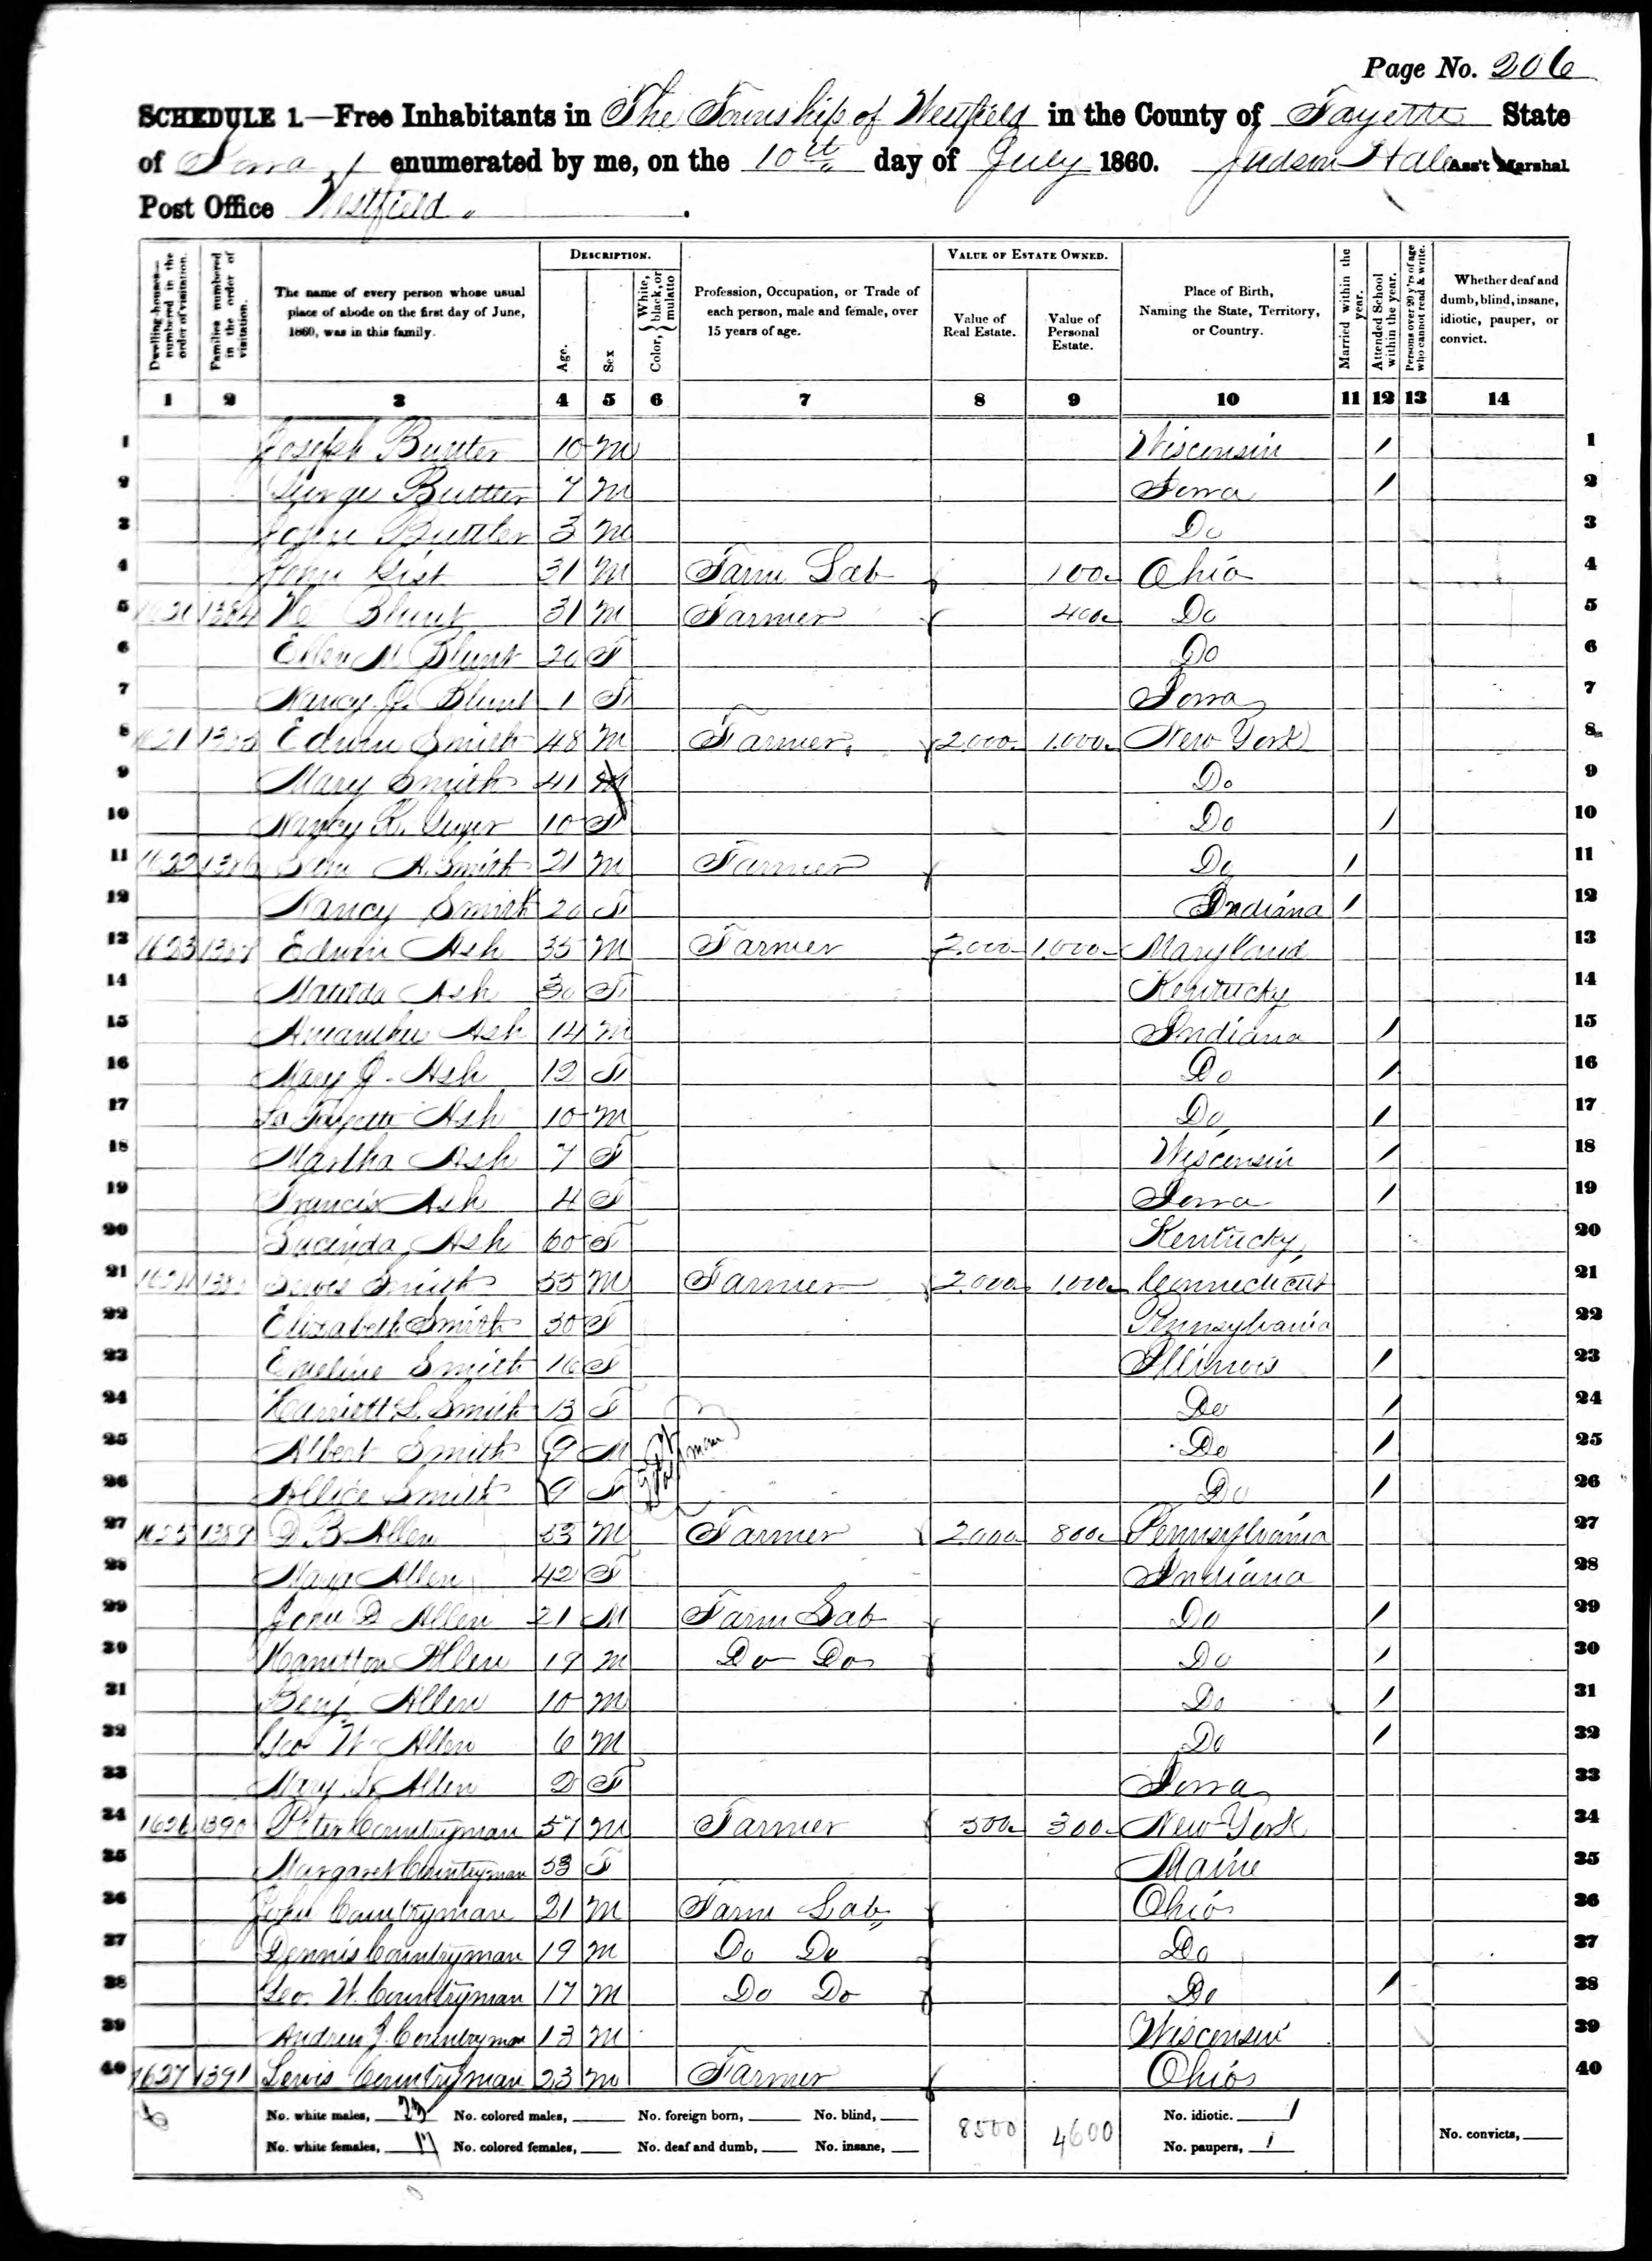 Page No. 206
SCHEDULE 1.—Free Inhabitants in The Township of Westfield in the County of Fayette State
of Iowa enumerated by me, on the 10th day of July 1860. Judson Hale Ass't Marshal
Post Office Westfield.
DESCRIPTION. VALUE OF ESTATE OWNED.
Dwelling-houses—numbered in the order of visitation. Families numbered in the order of visitation. The name of every person whose usual place of abode on the first day of June, 1860, was in this family. Age. Sex Color, { White, black, or mulatto Profession, Occupation, or Trade of each person, male and female, over 15 years of age. Value of Real Estate. Value of Personal Estate. Place of Birth, Naming the State, Territory, or Country. Married within the year. Attended School within the year. Persons over 20 y'rs of age who cannot read & write. Whether deaf and dumb, blind, insane, idiotic, pauper, or convict.
1 2 3 4 5 6 7 8 9 10 11 12 13 14
1 Joseph Buttler 10 M Wisconsin / 1
2 George Buttler 7 M Iowa / 2
3 John Buttler 3 M Do 3
4 John Gist 31 M Farm Lab 100 Ohio 4
5 1384 Blunt 31 M Farmer 400 Do 5
6 Ellen M Blunt 20 F Do 6
7 Nancy J. Blunt 1 F Iowa 7
8 1621 1385 Edwin Smith 48 M Farmer 2000 1000 New York 8
9 Mary Smith 41 Do 9
10 Nancy 10 F Do / 10
11 1622 1386 A. Smith 21 M Farmer Do / 11
12 Nancy Smith 20 F Indiana / 12
13 1623 1387 Edwin Ash 35 M Farmer 2000 1000 Maryland 13
14 Matilda Ash 30 F Kentucky 14
15 Ash 14 M Indiana / 15
16 Mary J. Ash 12 F Do / 16
17 La Fayette Ash 10 M Do / 17
18 Martha Ash 7 F Wisconsin / 18
19 Francis Ash 4 F Iowa / 19
20 Lucinda Ash 60 F Kentucky 20
21 1624 1388 Smith 55 M Farmer 2000 1000 Connecticut 21
22 Elizabeth Smith 50 F Pennsylvania 22
23 Emeline Smith 16 F Illinois / 23
24 Harriett L. Smith 13 F Do / 24
25 Albert Smith 9 M Do / 25
26 Allice Smith 9 F Do / 26
27 1625 1389 D. B. Allen 53 M Farmer 2000 800 Pennsylvania 27
28 Mary Allen 42 F Indiana 28
29 John D Allen 21 M Farm Lab Do / 29
30 Hamilton Allen 19 M Do Do Do / 30
31 Benj Allen 10 M Do / 31
32 Geo W Allen 6 M Do / 32
33 Mary Allen 2 F Iowa 33
34 1626 1390 Peter Countryman 57 M Farmer 500 300 New York 34
35 Margaret Countryman 53 F Maine 35
36 John Countryman 21 M Farm Lab Ohio 36
37 Dennis Countryman 19 M Do Do Do 37
38 Geo. W. Countryman 17 M Do Do Do / 38
39 Andrew J. Countryman 13 M Wisconsin 39
40 1627 1391 Lewis Countryman 23 M Farmer Ohio 40
No. white males, 23 No. colored males, No. foreign born, No. blind, 8500 4600 No. idiotic.
No. white females, 17 No. colored females, No. deaf and dumb, No. insane, No. paupers, No. convicts,